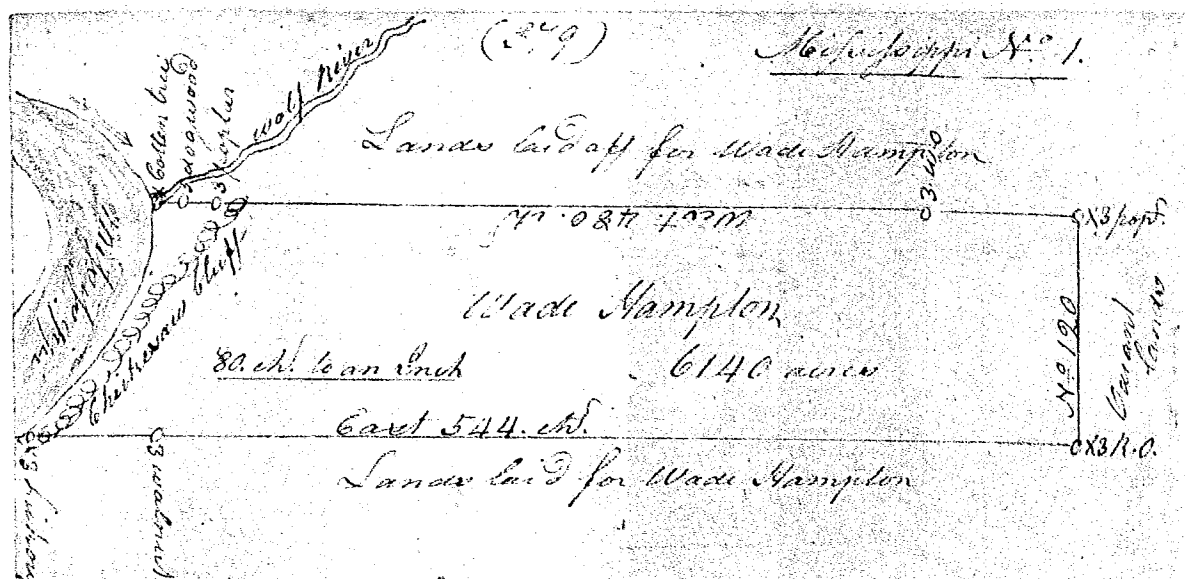 (279)
Mississippi No. 1.
X Cotten tree
3 dogwood
3 poplar
wolf river
Lands laid off for Wade Hampton
3 W.O
West. 480. ch.
X3 pop.
Mississippi
Chickesaw Cluff
Wade Hampton
80. ch. to an Inch
6140 acres
No 120
Vacant
lands
East 544. ch.
X3 R.O.
Lands laid for Wade Hampton
X3
3 walnut